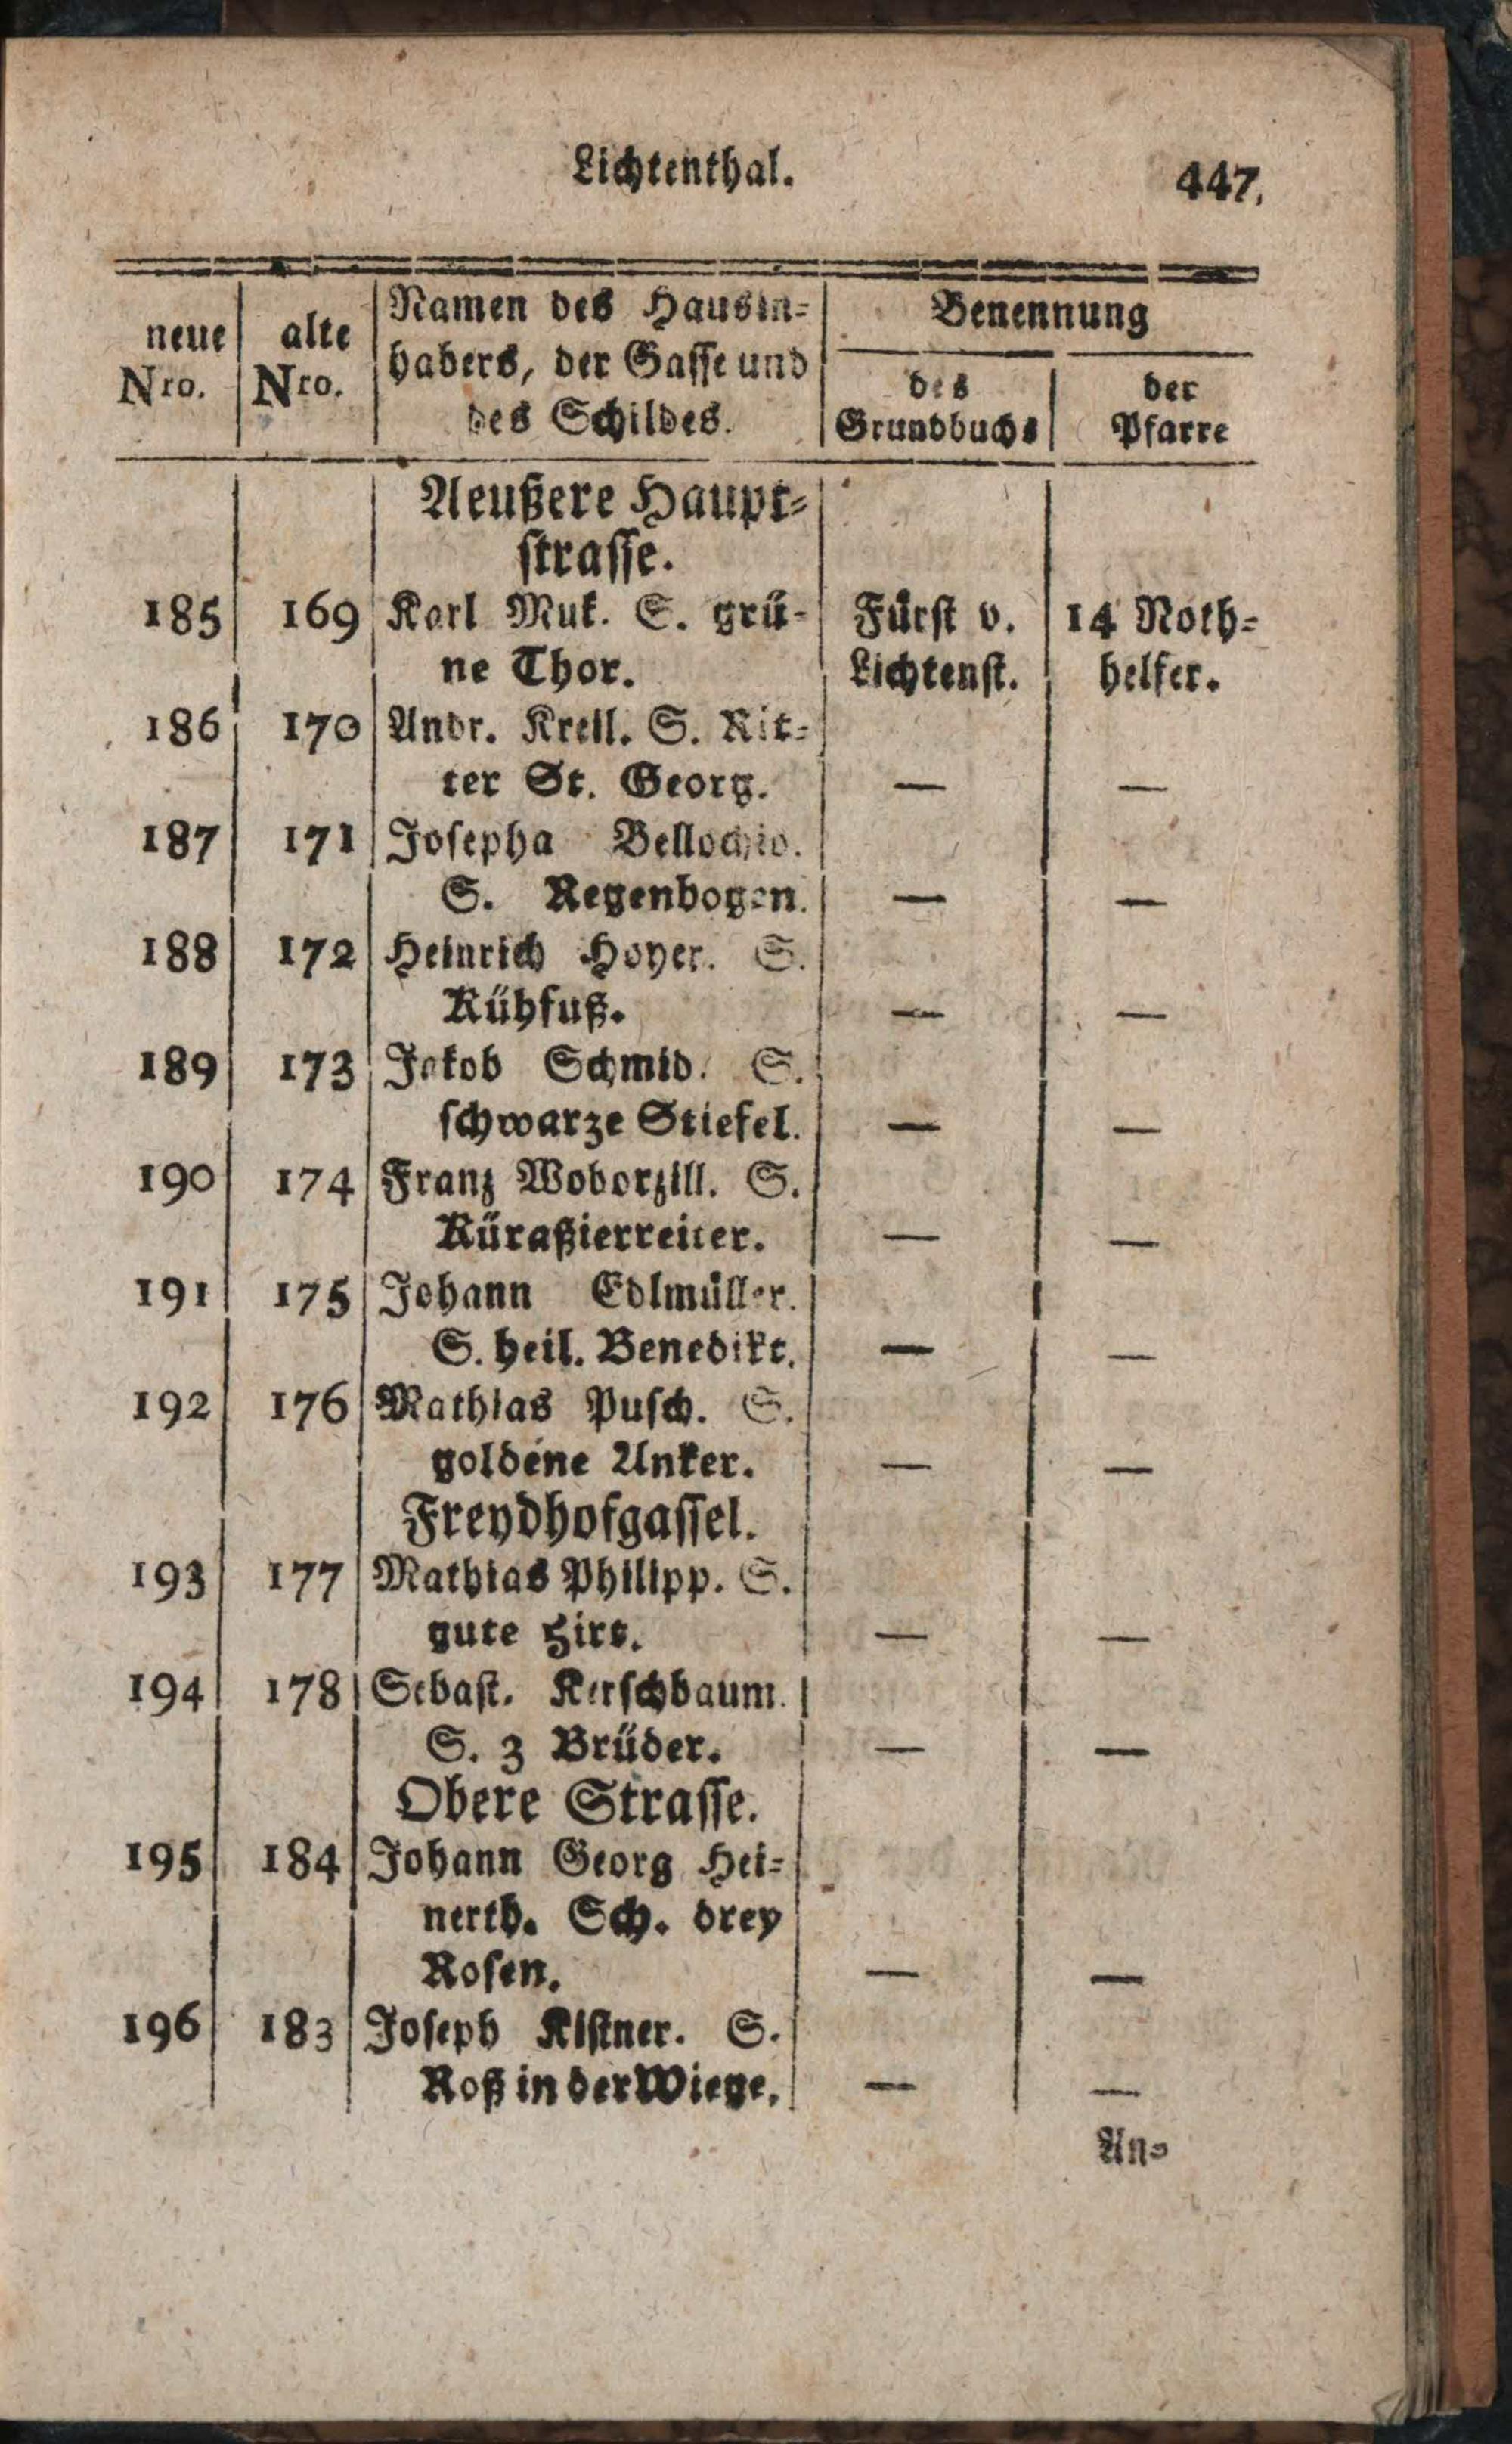 Lichtenthal. 447.
neue Nro. alte Nro. Namen des Hausin-
habers, der Gasse und
des Schildes.
Benennung
des Grundbuchs
der Pfarre
Aeußere Haupt-
strasse.
185 169 Karl Muk. S. grü- Fürst v. 14 Noth-
ne Thor. Lichtenst. helfer.
186 170 Andr. Krell. S. Rit-
ter St. Georg. — —
187 171 Josepha Bellochio.
S. Regenbogen. — —
188 172 Heinrich Hoyer. S.
Kühfuß. — —
189 173 Jakob Schmid. S.
schwarze Stiefel. — —
190 174 Franz Woborzill. S.
Küraßierreiter. — —
191 175 Johann Edlmüller.
S. heil. Benedikt. — —
192 176 Mathias Pusch. S.
goldene Anker. — —
Freydhofgassel.
193 177 Mathias Philipp. S.
gute Hirt. — —
194 178 Sebast. Kerschbaum.
S. 3 Brüder. — —
Obere Strasse.
195 184 Johann Georg Hei-
nerth. Sch. drey
Rosen. — —
196 183 Joseph Kistner. S.
Roß in der Wiege. — —
An-